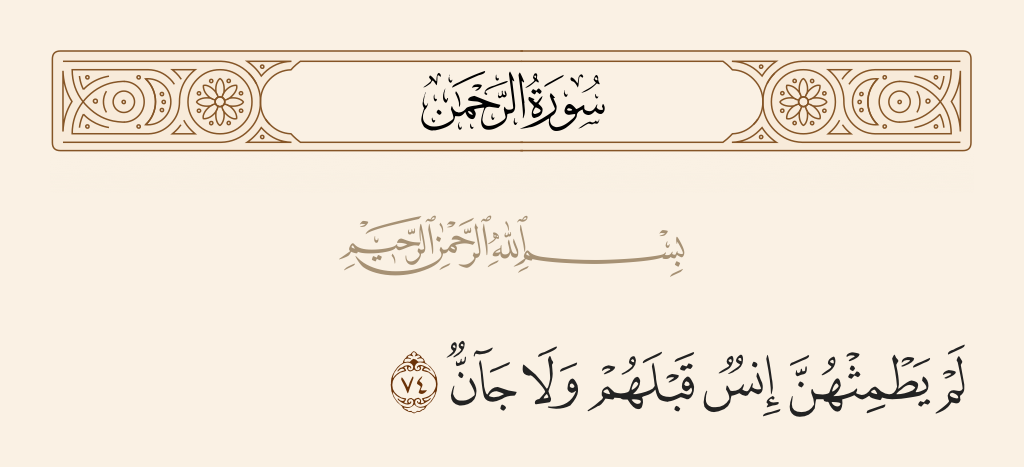 سُورَةُ الرَّحْمَٰن
بِسْمِ ٱللَّهِ ٱلرَّحْمَٰنِ ٱلرَّحِيمِ
لَمْ يَطْمِثْهُنَّ إِنسٌ قَبْلَهُمْ وَلَا جَآنٌّ ٧٤